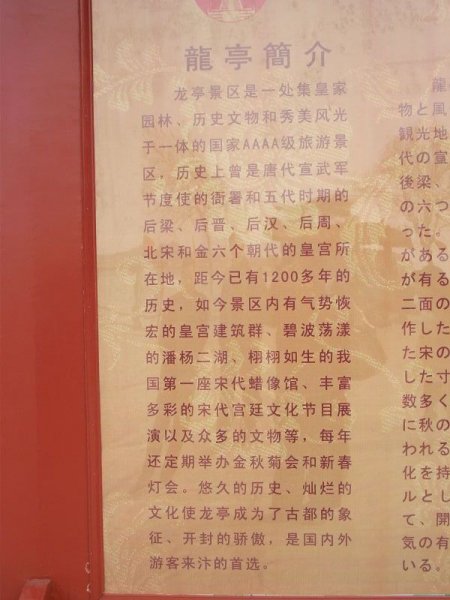 龍亭簡介
龙亭景区是一处集皇家
园林、历史文物和秀美风光
于一体的国家AAAA级旅游景
区，历史上曾是唐代宣武军
节度使的衙署和五代时期的
后梁、后晋、后汉、后周、
北宋和金六个朝代的皇宫所
在地，距今已有1200多年的
历史，如今景区内有气势恢
宏的皇宫建筑群、碧波荡漾
的潘杨二湖、栩栩如生的我
国第一座宋代蜡像馆、丰富
多彩的宋代宫廷文化节目展
演以及众多的文物等，每年
还定期举办金秋菊会和新春
灯会。悠久的历史、灿烂的
文化使龙亭成为了古都的象
征、开封的骄傲，是国内外
游客来汴的首选。
龍
物と風
観光地
代の宣
後梁、
の六つ
った。
がある
が有る
二面の
作した
た宋の
した寸
数多く
に秋の
われる
化を持
ルとし
て、開
気の有
いる。